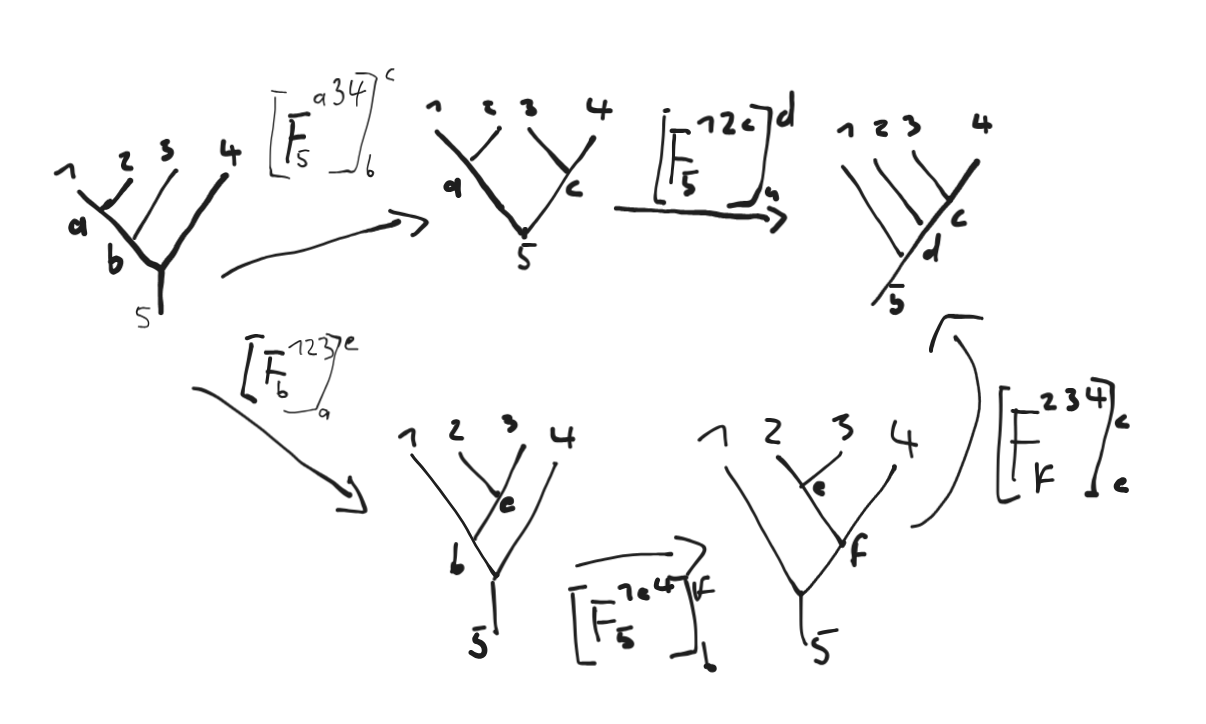 1 2 3 4
a
b
5
[F₅ᵃ³⁴]ᶜ_b
1 2 3 4
a c
5
[F₅¹²ᶜ]ᵈ_a
1 2 3 4
c
d
5
[F_b¹²³]ᵉ_a
1 2 3 4
e
b
5
[F₅¹ᵉ⁴]ᶠ_b
1 2 3 4
e
f
5
[F_f²³⁴]ᶜ_e